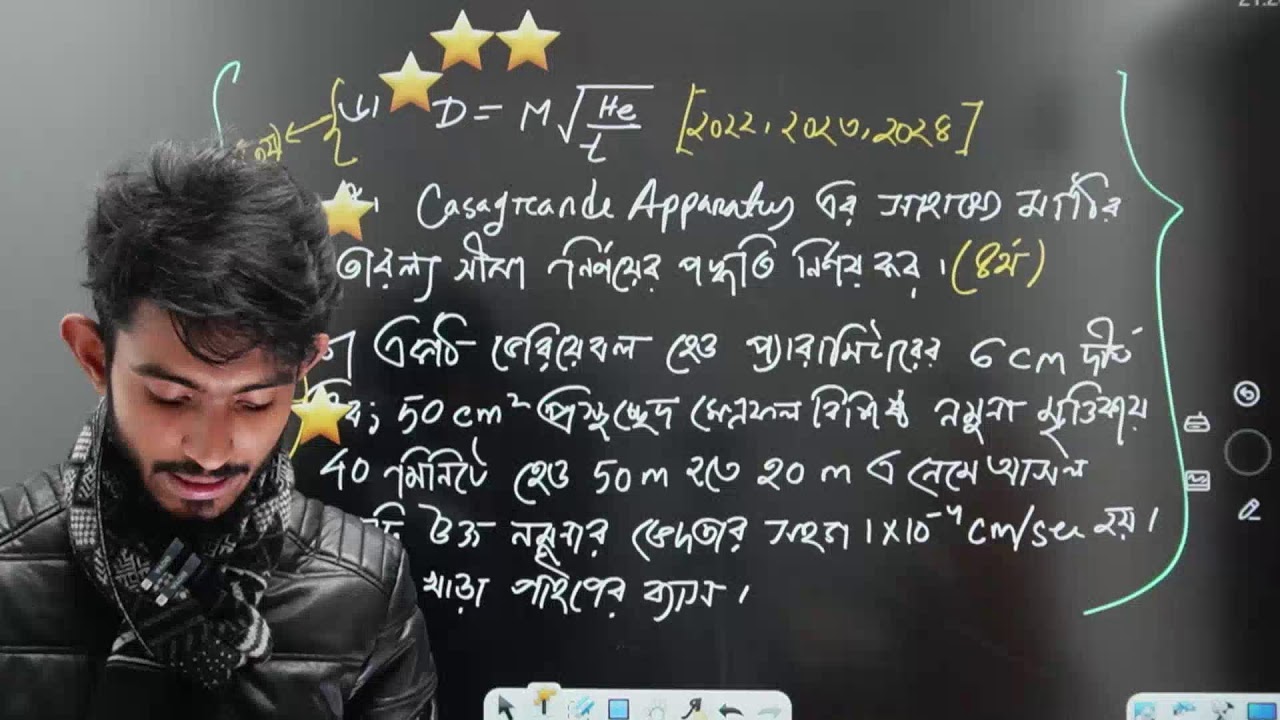 ৬। D = M√(He/t) [২০২২, ২০২৩, ২০২৪]
Casagrande Apparatus এর সাহায্যে মাটির
তারল্য সীমা নির্ণয়ের পদ্ধতি নির্ণয় কর। (৪র্থ)
একটি ভেরিয়েবল হেড প্যারামিটারের 6 cm দীর্ঘ
50 cm² প্রস্থচ্ছেদ ক্ষেত্রফল বিশিষ্ট নমুনা মৃত্তিকায়
40 মিনিটে হেড 50 m হতে ২0 m এ নেমে আসল
উক্ত নমুনার ভেদ্যতার সহগ 1×10⁻⁴ cm/sec হয়।
খাড়া পাইপের ব্যাস।